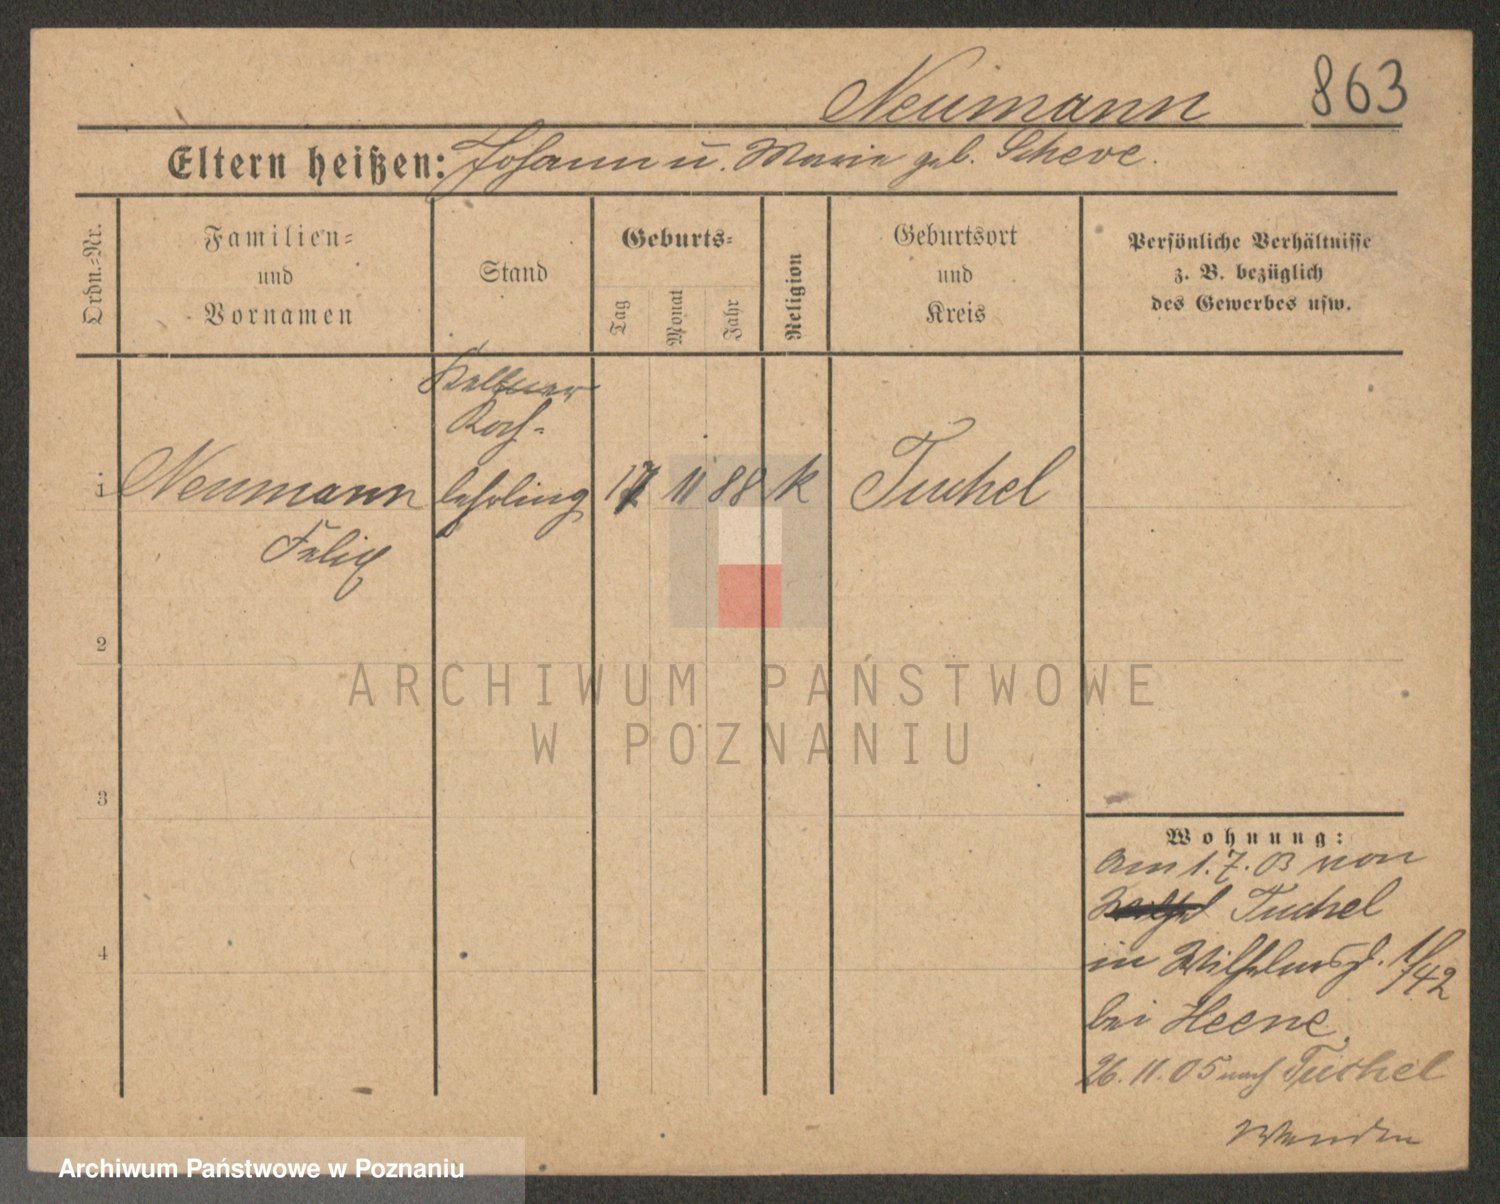 Neumann 863
Eltern heißen: Johann u. Marie geb. Scheve.
Ordn.-Nr.
Familien-
und
Vornamen
Stand
Geburts-
Tag
Monat
Jahr
Religion
Geburtsort
und
Kreis
Persönliche Verhältnisse
z. B. bezüglich
des Gewerbes usw.
Kellner
Koch-
1 Neumann lehrling 17 11 88 k Tuchel
Felix
2
ARCHIWUM PAŃSTWOWE
W POZNANIU
3
4
Wohnung:
Am 1.7.03 von
Tuchel
in Wilhelmspl. 1/42
bei Heene,
26.11.05 nach Tuchel
Wenden
Archiwum Państwowe w Poznaniu